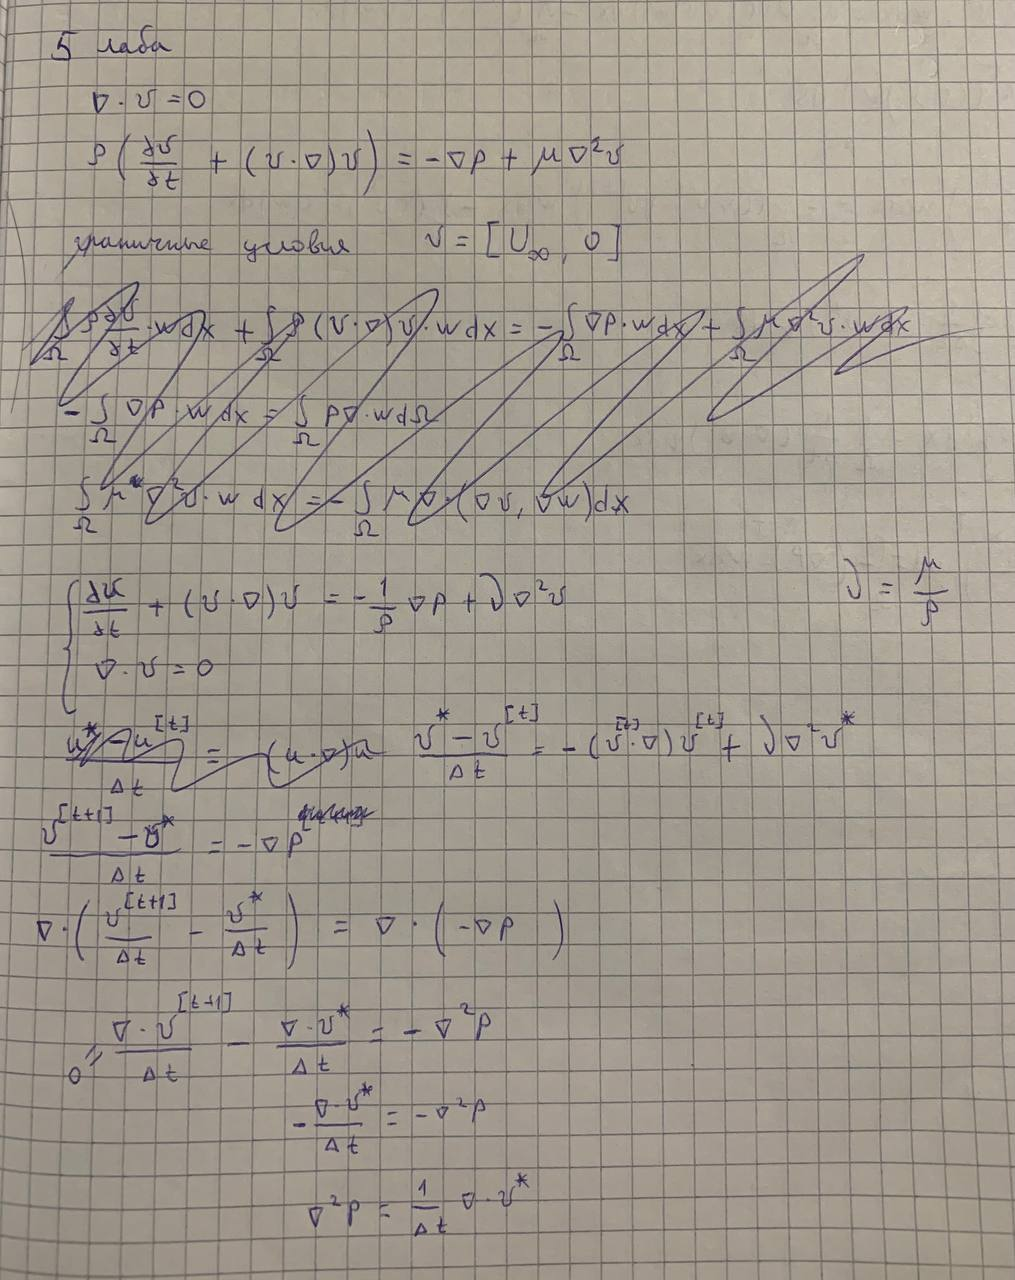 5 лаба
∇ · v = 0
ρ (∂v/∂t + (v · ∇)v) = -∇p + μ∇²v
граничные условия v = [U∞, 0]
∫Ω ρ ∂v/∂t · w dx + ∫Ω ρ (v · ∇)v · w dx = - ∫Ω ∇p · w dx + ∫Ω μ∇²v · w dx
- ∫Ω ∇p · w dx = ∫Ω p∇ · w dΩ
∫Ω μ ∇²v · w dx = - ∫Ω μ∇ · (∇v, ∇w) dx
{ ∂v/∂t + (v · ∇)v = -1/ρ ∇p + ν∇²v ν = μ/ρ
∇ · v = 0
(u* - u^[t])/Δt = -(u · ∇)u (v* - v^[t])/Δt = -(v^[t] · ∇)v^[t] + ν∇²v*
(v^[t+1] - v*)/Δt = -∇p
∇ · (v^[t+1]/Δt - v*/Δt) = ∇ · (-∇p)
0 = ∇ · v^[t+1]/Δt - ∇ · v*/Δt = -∇²p
- ∇ · v*/Δt = -∇²p
∇²p = 1/Δt ∇ · v*